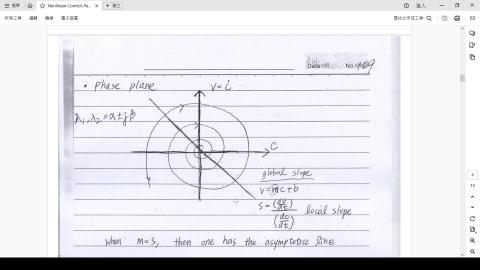 Nonlinear Control-Pa...
建立
登入
所有工具
編輯
轉換
電子簽署
Date
No. 109
• phase plane
v = ċ
λ₁, λ₂ = α ± jβ
C
global slope
v = mc + b
s = (dv/dt) / (dc/dt) local slope
when m = s, then one has the asymptotice line